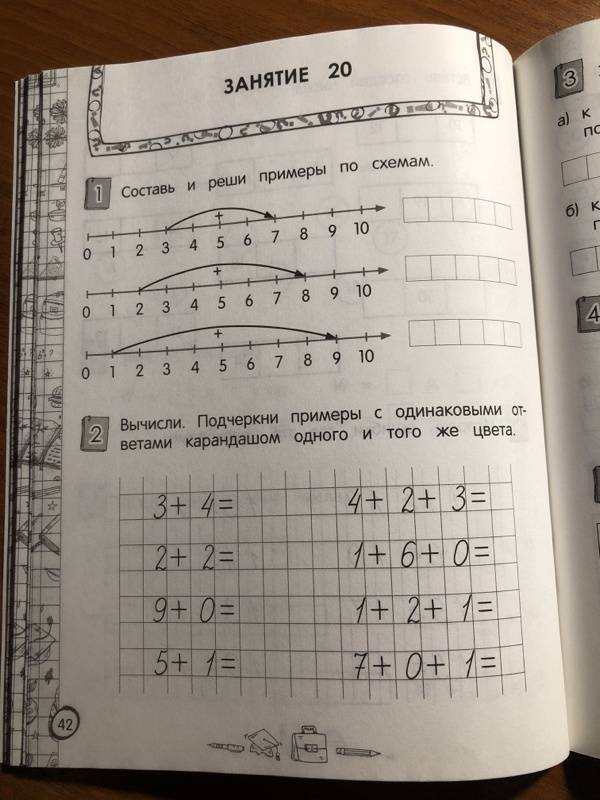 ЗАНЯТИЕ 20
1 Составь и реши примеры по схемам.
+
0 1 2 3 4 5 6 7 8 9 10
+
0 1 2 3 4 5 6 7 8 9 10
+
0 1 2 3 4 5 6 7 8 9 10
2 Вычисли. Подчеркни примеры с одинаковыми от-
ветами карандашом одного и того же цвета.
3+ 4= 4+ 2+ 3=
2+ 2= 1+ 6+ 0=
9+ 0= 1+ 2+ 1=
5+ 1= 7+ 0+ 1=
42
3
а) к
б) к
4